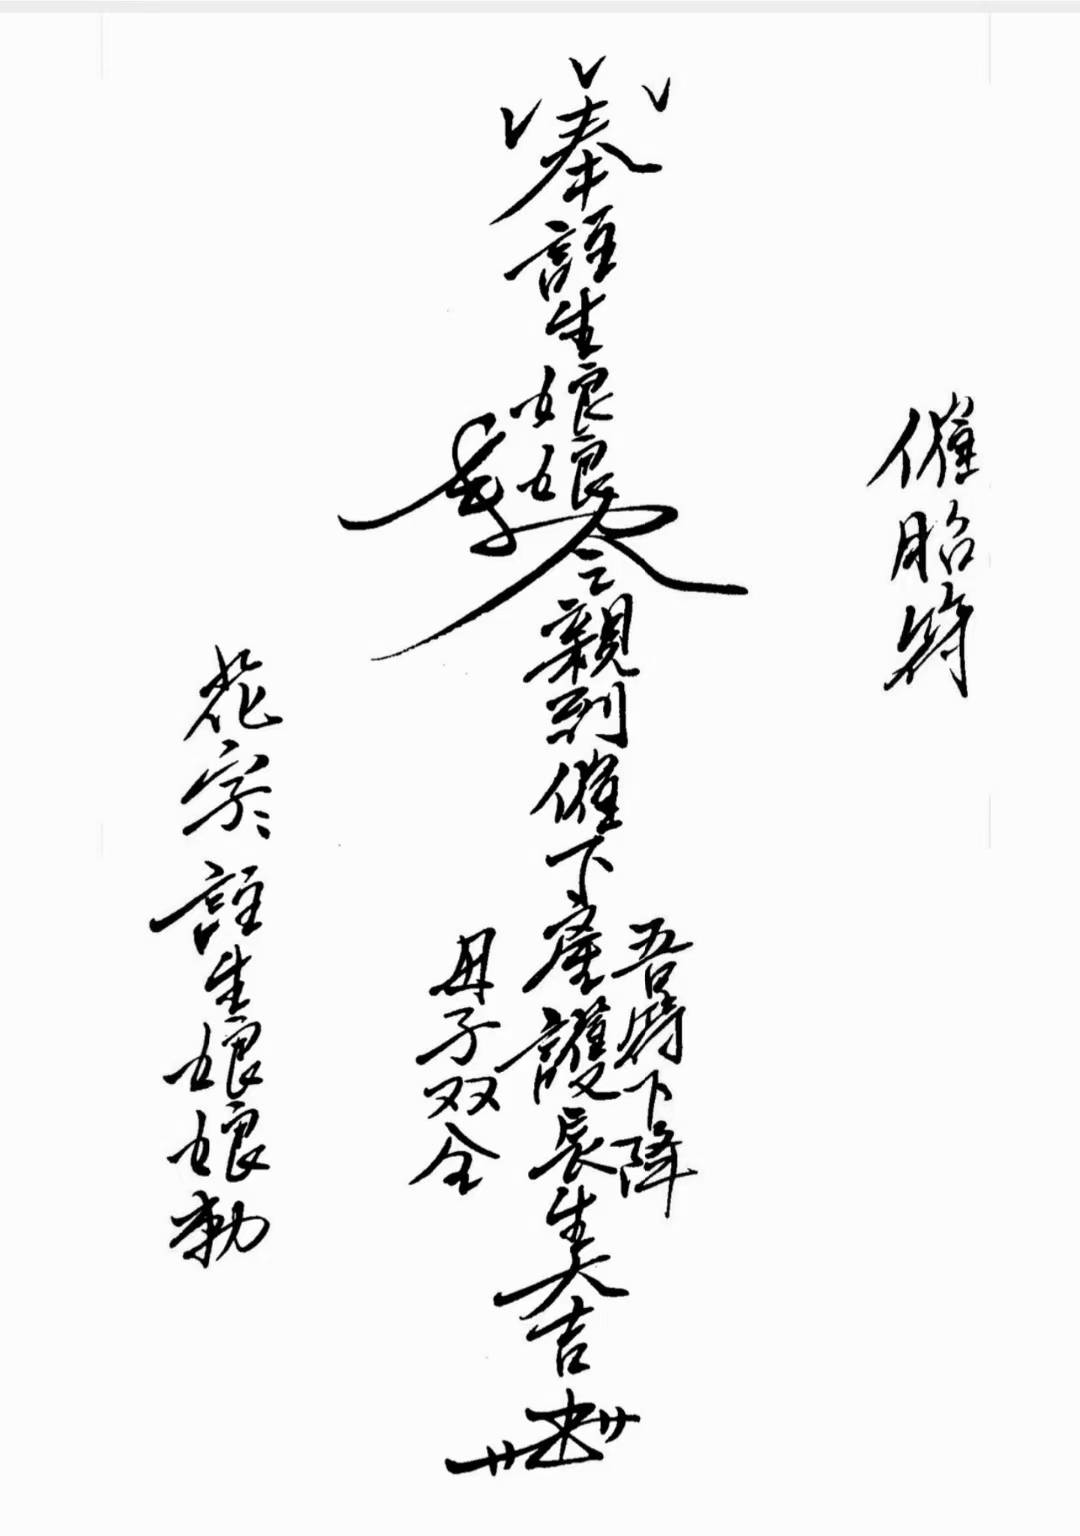 催胎符
奉註生娘娘令親到催下產護長生大吉
吾符下降
母子双全
花字：註生娘娘勅